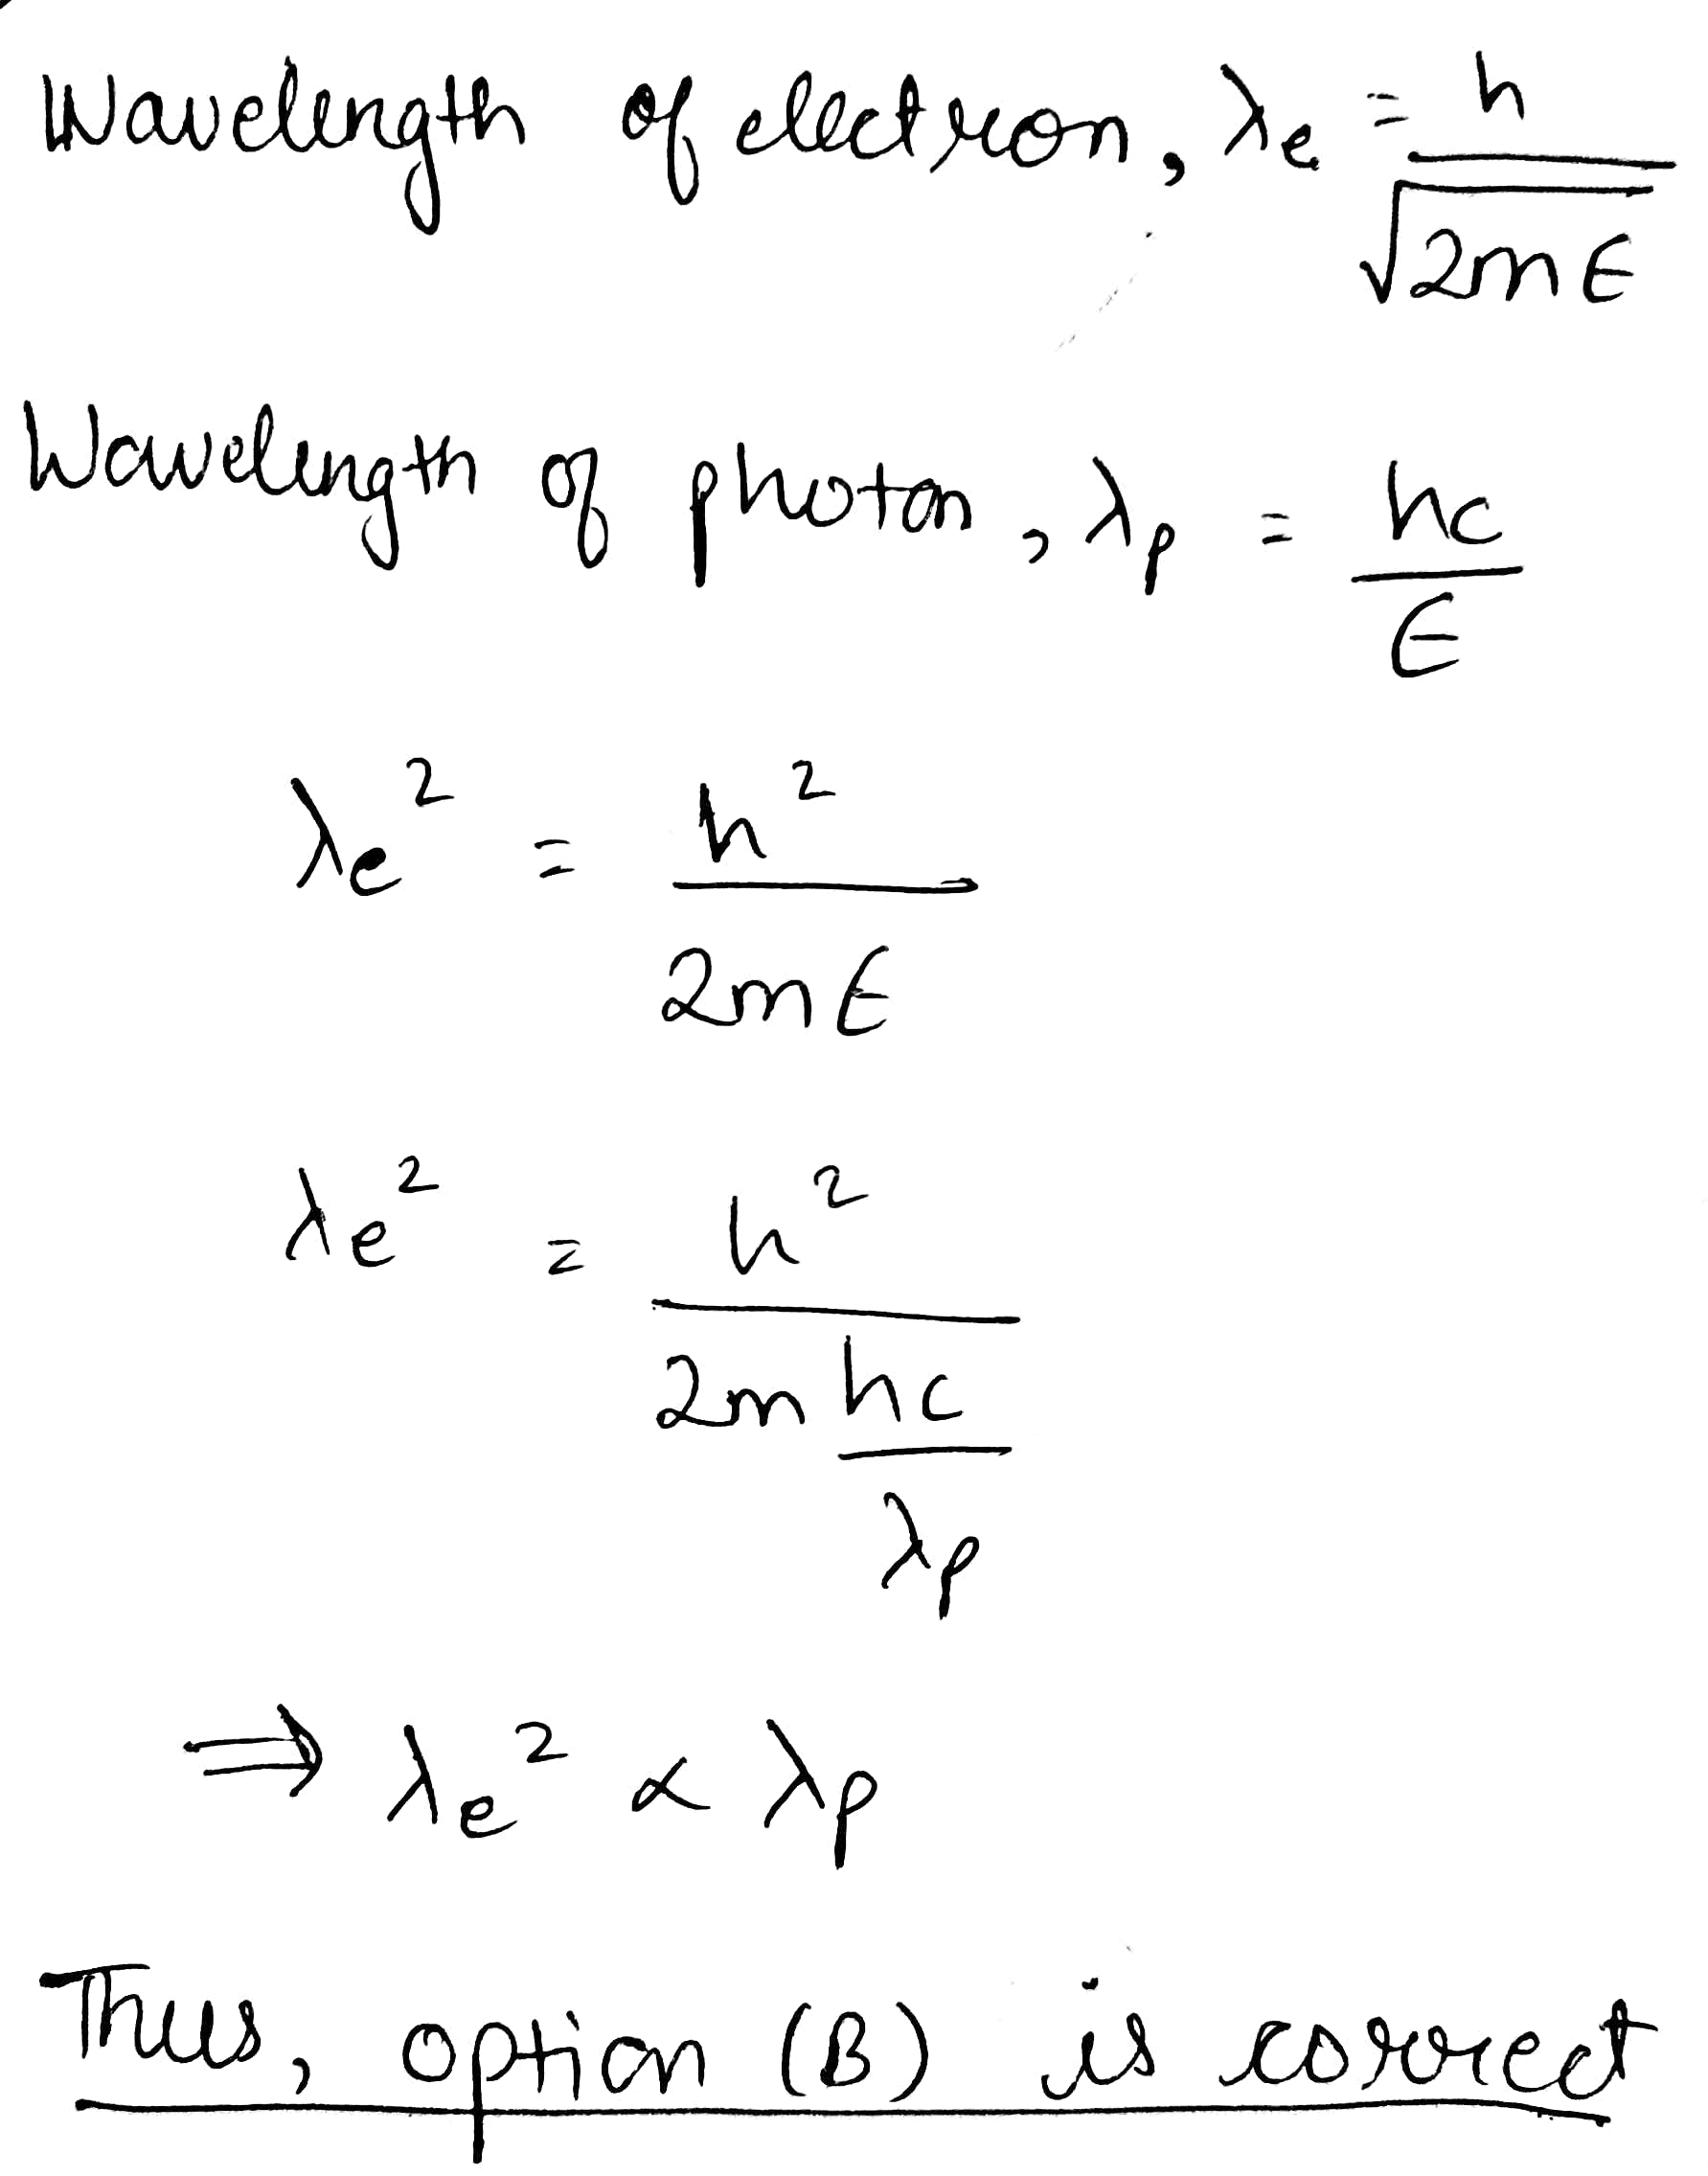 Wavelength of electron, λe = h / √2mE
Wavelength of photon, λp = hc / E
λe² = h² / 2mE
λe² = h² / 2m hc/λp
⇒ λe² ∝ λp
Thus, option (B) is correct